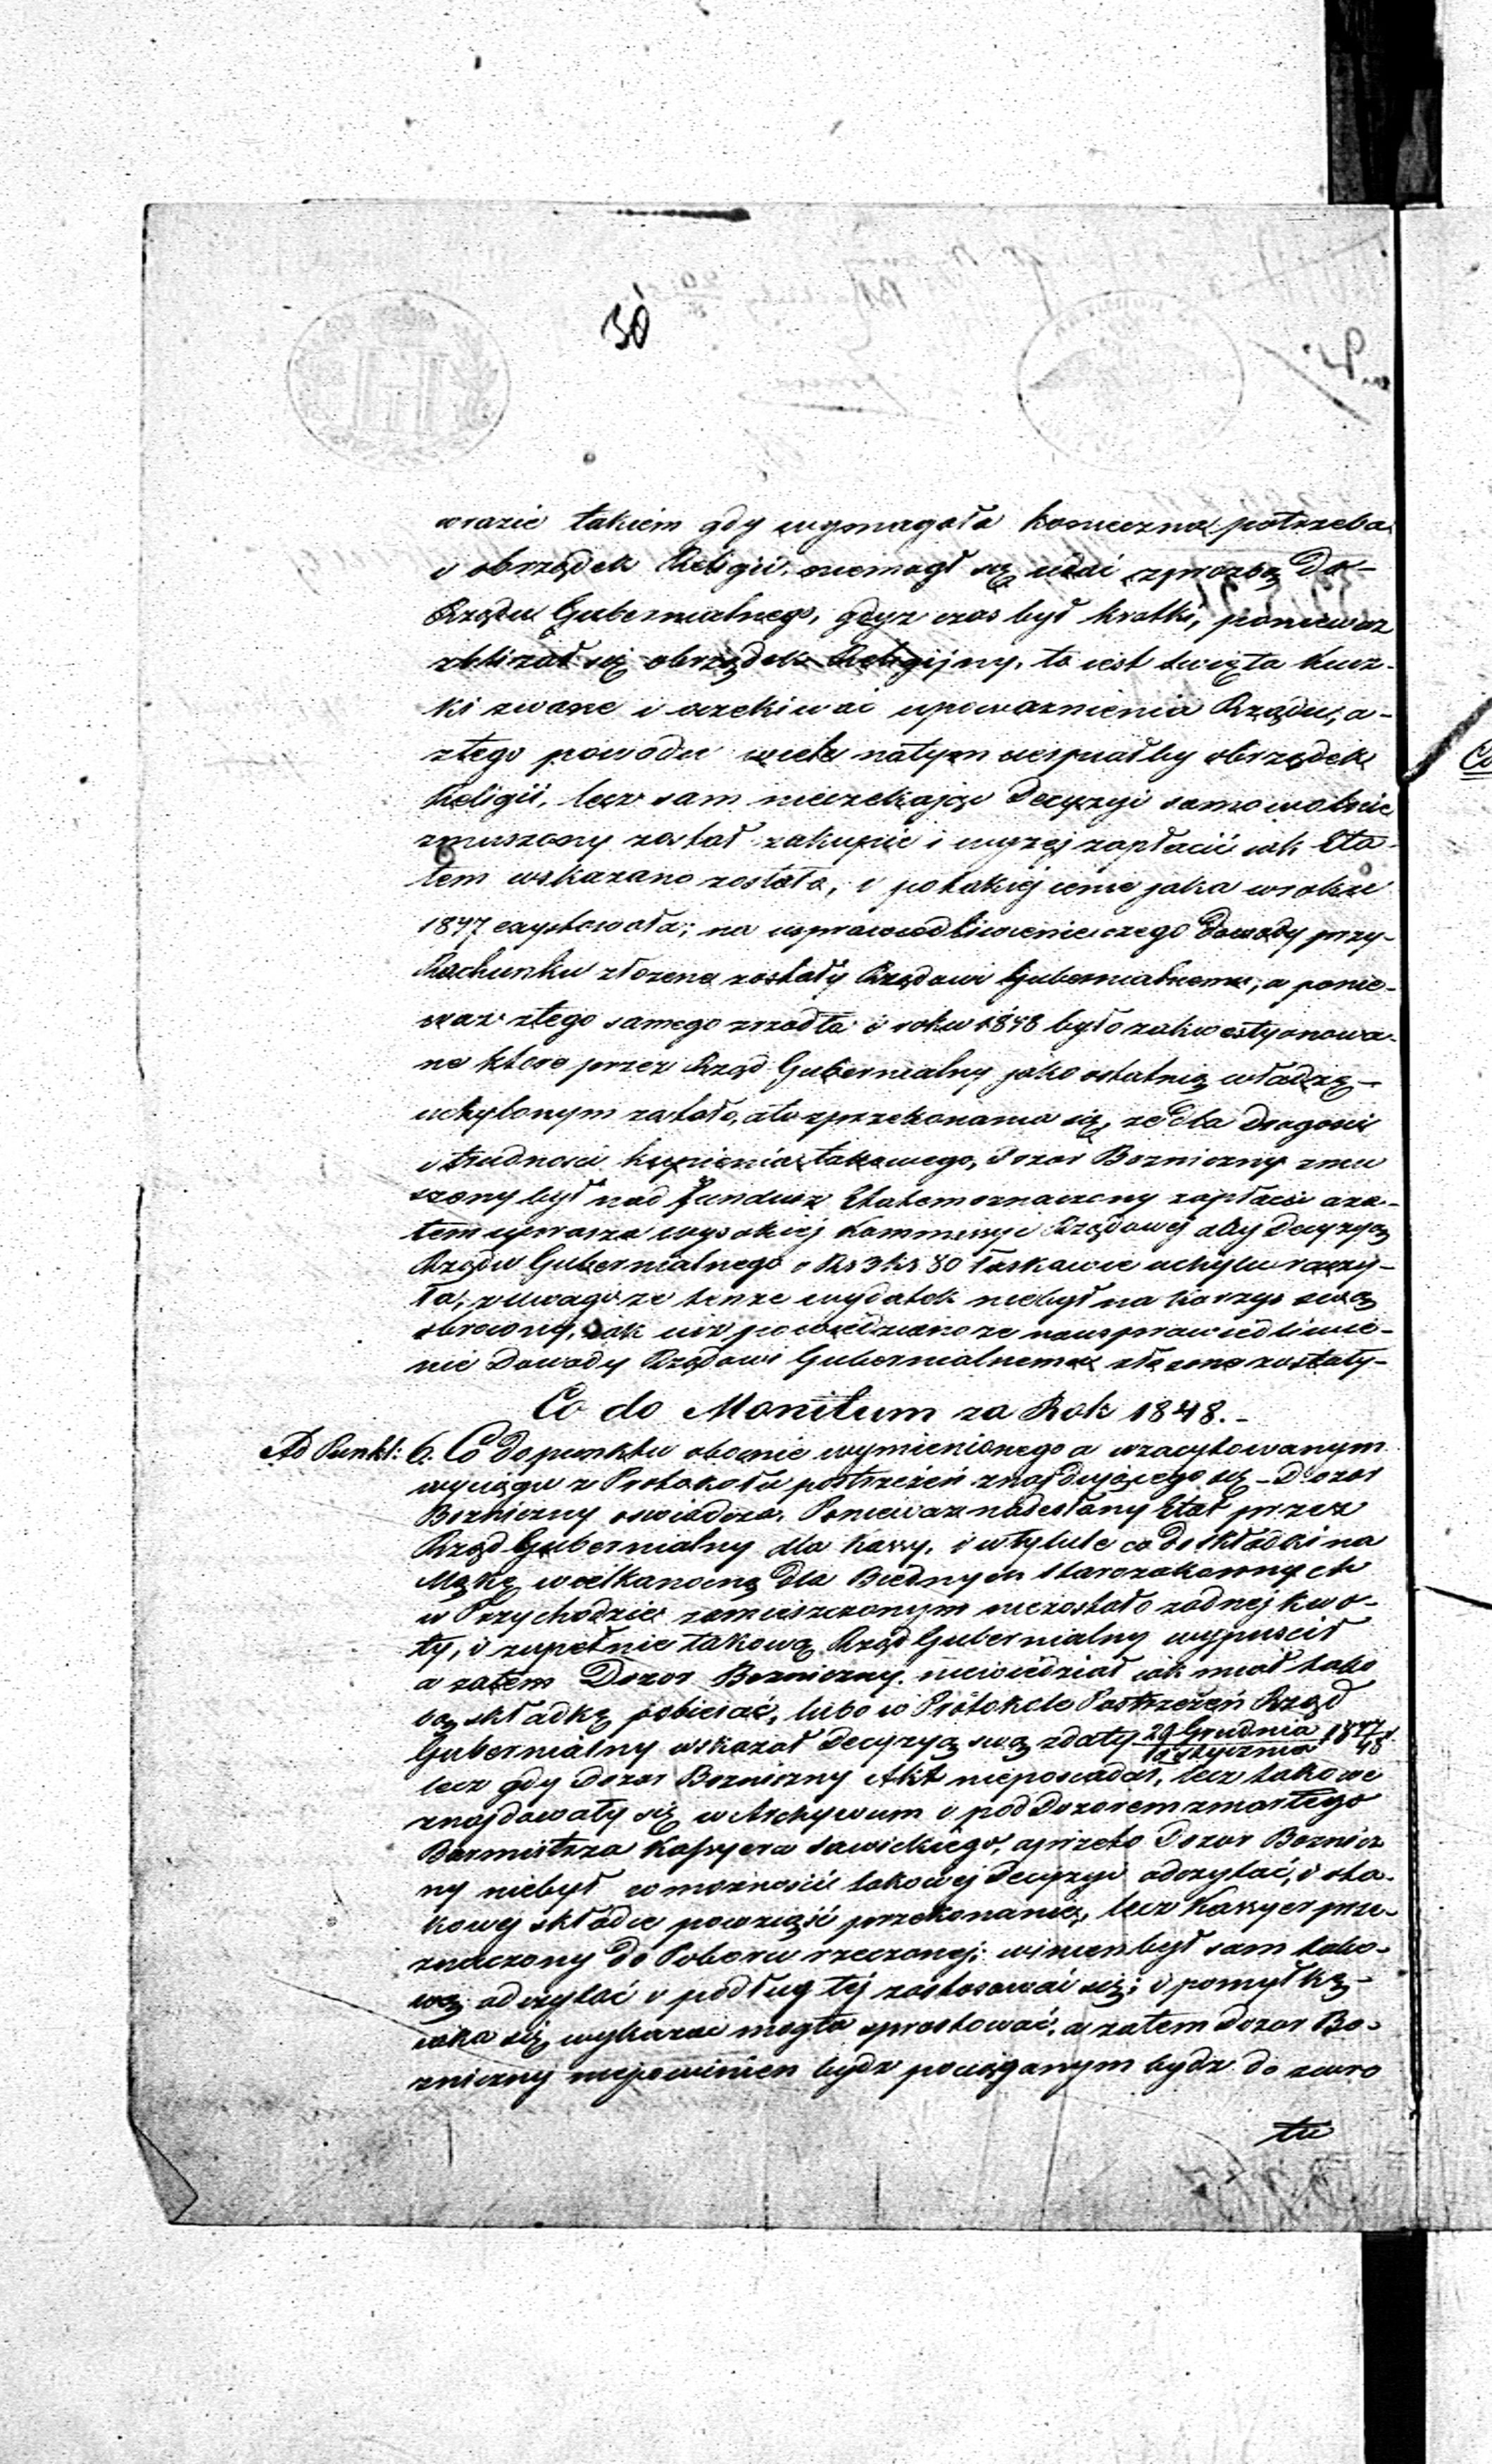 30
w razie takiem gdy wymagała konieczna potrzeba
i obrządek Religii, niemogł się udać z prozbą do-
Rządu Gubernialnego, gdyz czas był krotki, poniewaz
zblizał się obrządek Religijny, to iest swięta Kucz-
ki zwane i oczekiwać upowaznienia Rządu, a-
ztego powodu wiele natym obrządek
Religii, lecz sam nieczekając Decyzyi samowolnie
zmuszony został zakupić i wyzej zapłacić iak Eta-
tem wskazano zostało, i potakiej cenie jaka w roku
1847 exystowała; na usprawiedliwienie czego Dowody przy-
Rachunku złozene zostały Rządowi Gubernialnemu; a ponie-
waz ztego samego zrzodła i roku 1848 było zakwestyonowa-
ne ktore przez Rząd Gubernialny jako ostatnią władzę-
uchylonym zostało, a to z przekonania się, ze dla drogości
i trudności kupienia takowego, Dozor Bozniczny zmu
szony był nad fundusz Etatem oznaczony zapłacić aza-
tem uprasza wysokiej Kommissyi Rządowej aby Decyzyą
Rządu Gubernialnego o Rs 3 ks 80 łaskawie uchylić raczy-
ła, z uwagi ze tenze wydatek niebył na korzyść swą
obrocony, iak iuz powiedziano ze na usprawiedliwie-
nie Dowody Rządowi Gubernialnemu złozone zostały-
Co do Monitum za Rok 1848.-
Ad Punkt: 6. Co do punktu obocznie wymienionego a w zacytowanym
wyciągu z Protokołu postrzezeń znajdującego się - Dozor
Bozniczny oswiadcza. Poniewaz nadesłany Etat przez
Rząd Gubernialny dla Kassy, i w tytule co do składki na
Mąkę wielkanocną dla Biednych starozakonnych
w Przychodzie zamieszczonym niezostało zadnej kwo-
ty, i zupełnie takową Rząd Gubernialny wypuscił
a zatem Dozor Bozniczny niewiedział iak miał tako
wą składkę pobierać, lubo w Protokole Postrzezeń Rząd
Gubernialny wskazał Decyzyą swą z daty 29 Grudnia/10 stycznia 1847/48
lecz gdy Dozor Bozniczny Akt nieposiadał, lecz takowe
znajdowały się w Archywum i pod Dozorem zmarłego
Burmistrza Kassyera Sawickiego, aprzeto Dozor Boznicz
ny niebył w moznosci takowej Decyzyi odczytać, i o ta-
kowej składce powziąść przekonanie, lecz Kassyer prze-
znaczony do Poboru rzeczonej, winien był sam tako-
wą odczytać i podług tej zastosować się; i pomyłkę-
iaka się wykazać mogła sprostować, a zatem Dozor Bo-
zniczny niepowinien bydz pociąganym bydz do zwro
tu